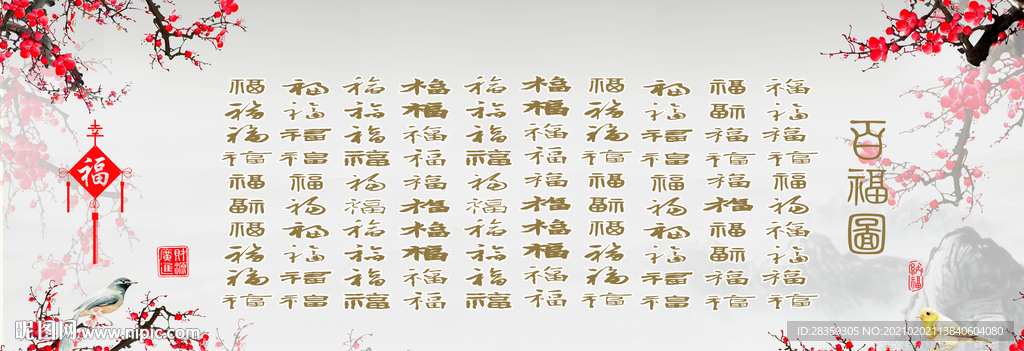 福 福 福 福 福 福 福 福 福 福
福 福 福 福 福 福 福 福 福 福
福 福 福 福 福 福 福 福 福 福
福 福 福 福 福 福 福 福 福 福
福 福 福 福 福 福 福 福 福 福
福 福 福 福 福 福 福 福 福 福
福 福 福 福 福 福 福 福 福 福
福 福 福 福 福 福 福 福 福 福
福 福 福 福 福 福 福 福 福 福
福 福 福 福 福 福 福 福 福 福
百福圖
幸
福
財源
廣進
納福
昵图网 www.nipic.com
ID:28359305 NO:20210202113840604080